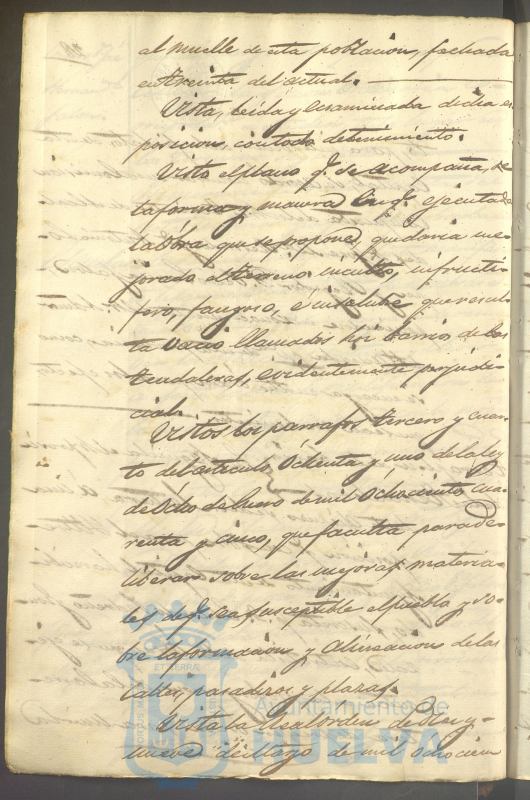 al muelle de esta poblacion, fechada
en treinta del actual.
Vista, leida y ecsaminada dicha es-
posicion, con todo detenimiento.
Visto el plano q.e se acompaña, de
la forma y manera q.e ejecutada
la Obra que se propone, quedaria me-
jorado el terreno inculto, infructi-
fero, fangoso, é insalubre que resul-
ta vacio llamados hoi barrio de las
tendaleras, evidentemente perjudi-
cial.
Vistos los parrafos tercero y cuar-
to del articulo Ochenta y uno de la ley
de Ocho de Enero de mil Ochocientos cua-
renta y cinco, que faculta para de-
liberar sobre las mejoras materia-
les de q.e sea susceptible el pueblo y so-
bre la formacion y alineacion de las
calles, pasadizos y plazas.
Vista la Real orden de diez y
nueve de Mayo de mil ochocien
Ayuntamiento de
HUELVA